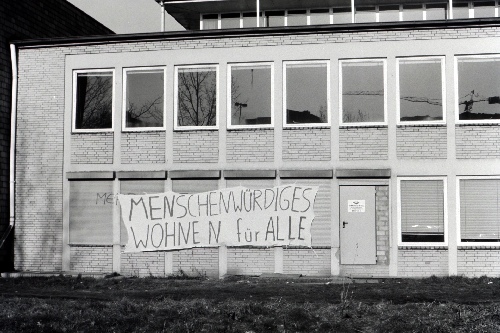 MENSCHENWÜRDIGES
WOHNEN für ALLE